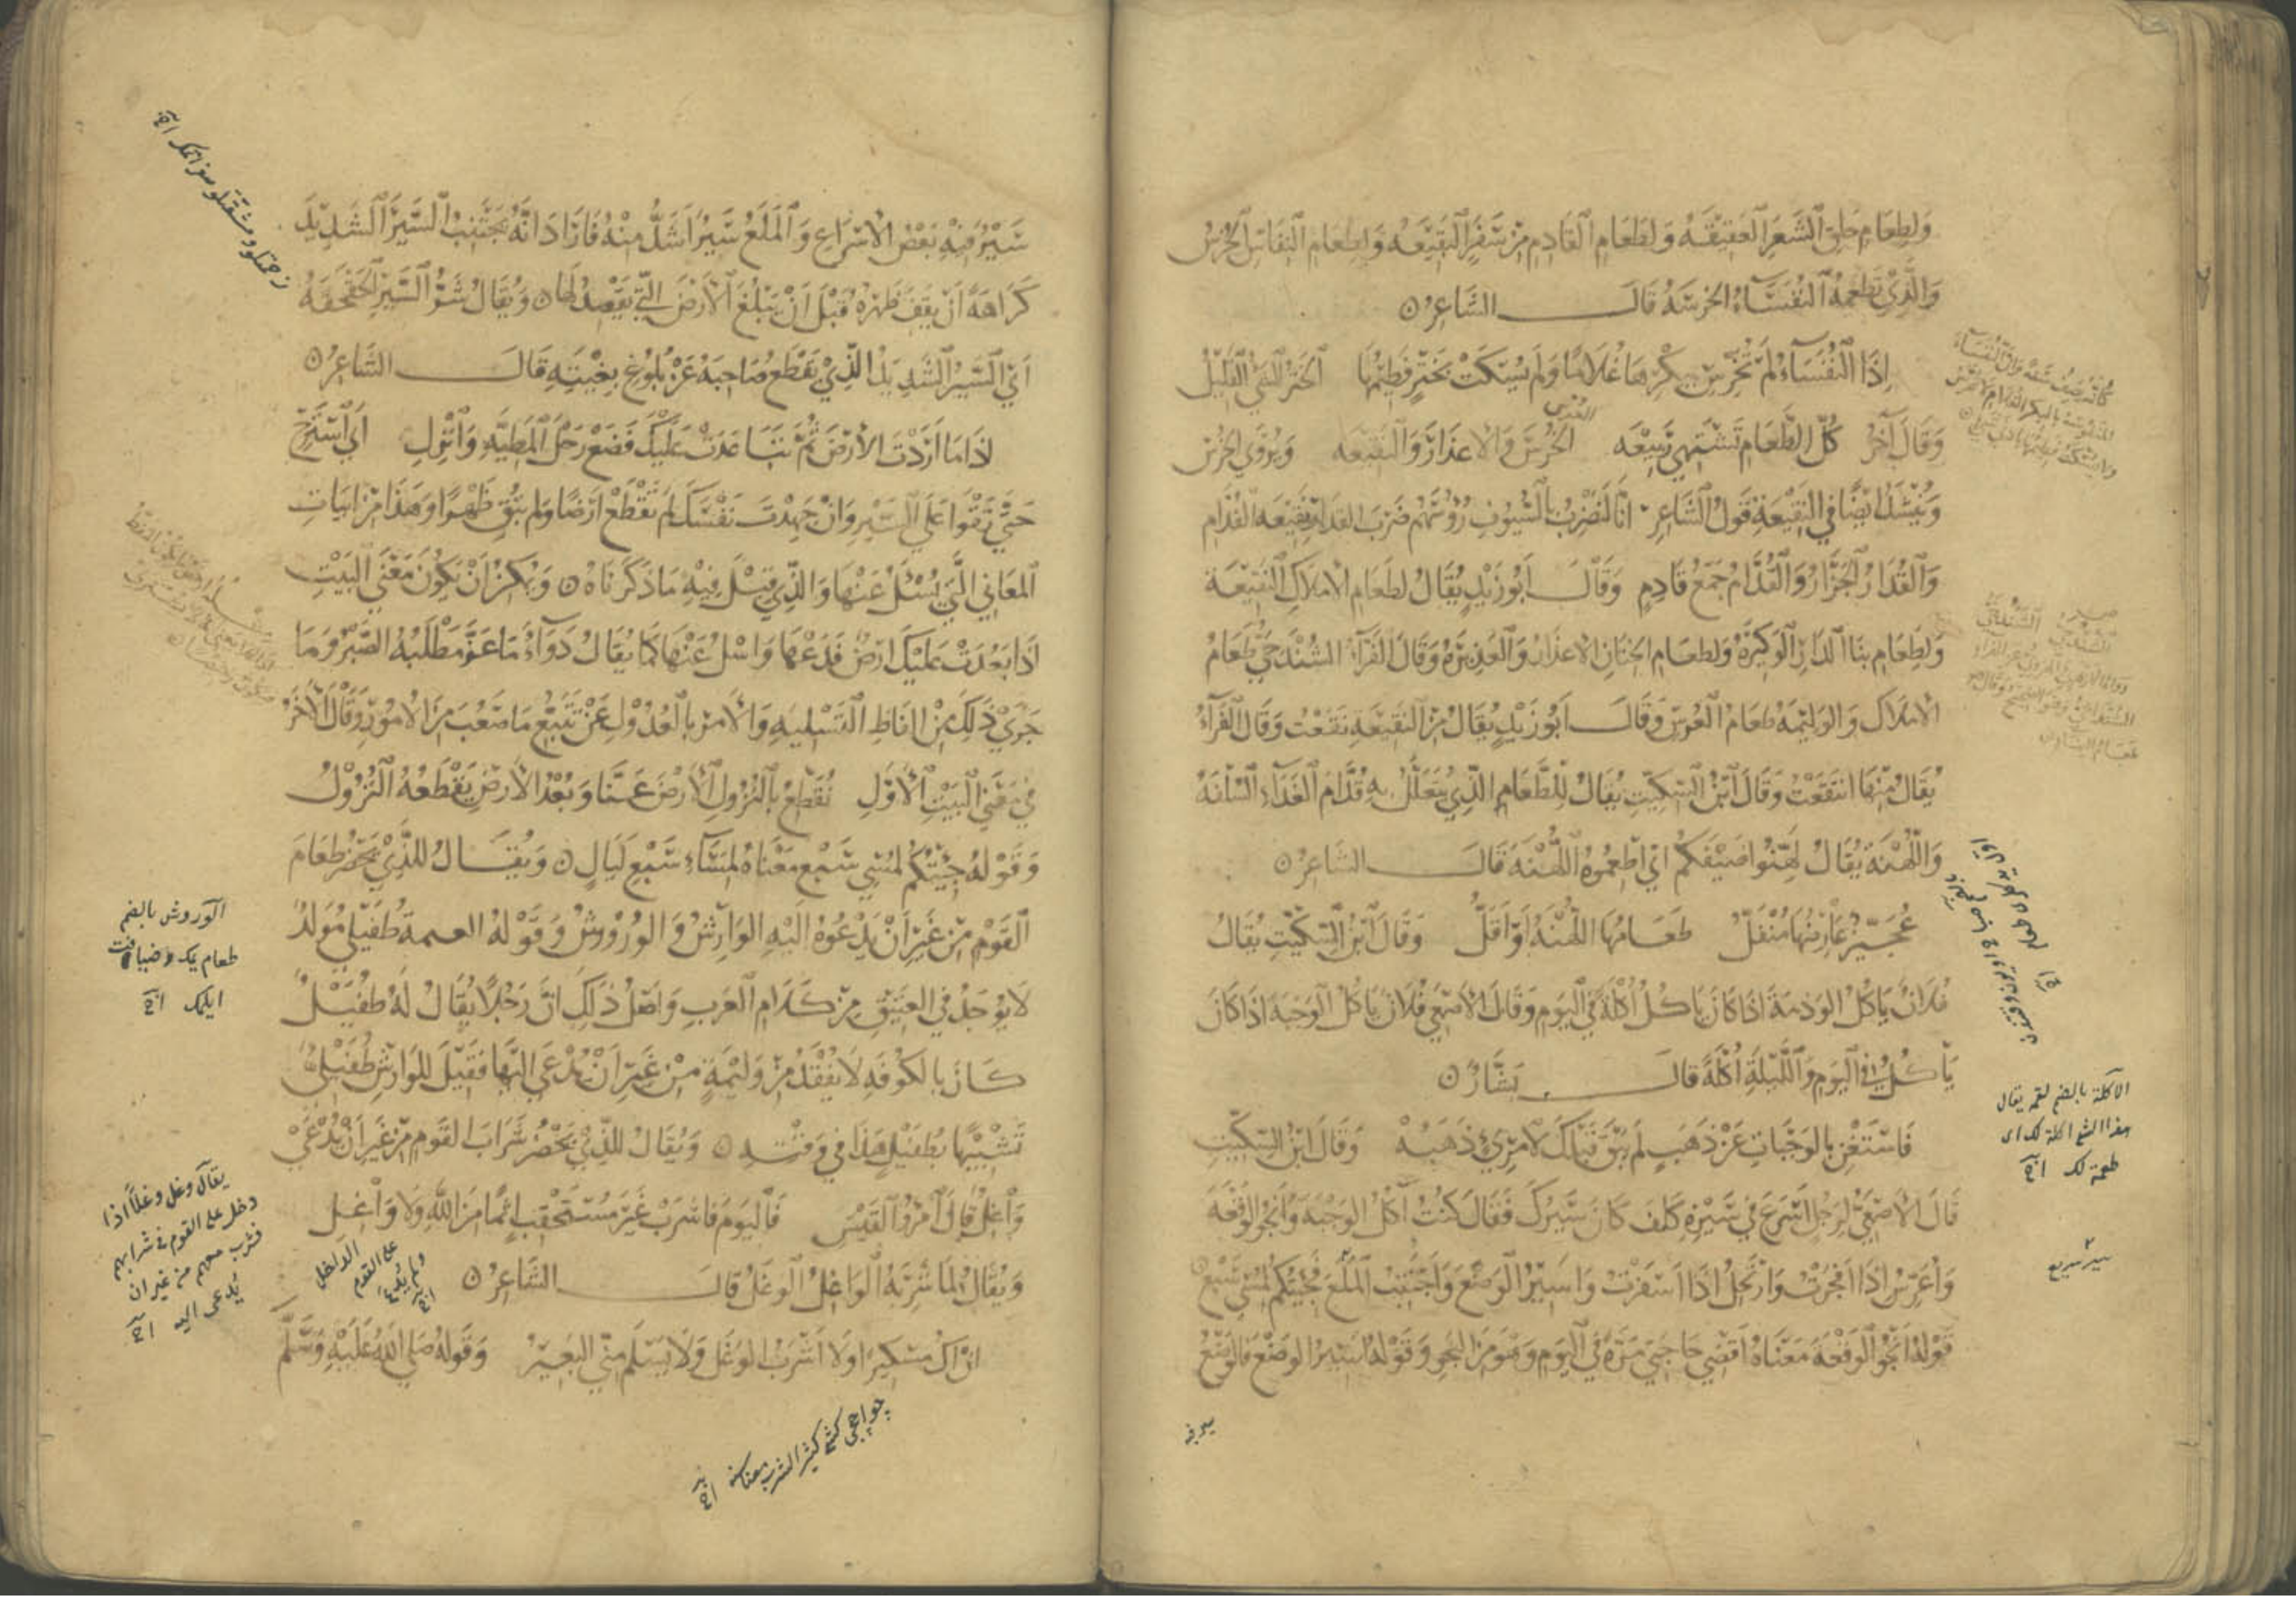 وَلِطَعَامِ حَلْقِ الشَّعَرِ الْعَقِيْقَةُ وَلِطَعَامِ الْقَادِمِ مِنْ سَفَرٍ النَّقِيْعَةُ وَلِطَعَامِ النِّفَاسِ الْخُرْسُ
وَالَّذِي تُطْعَمُهُ النُّفَسَاءُ الخُرْسَةُ قَالَ الشَّاعِرُ
اِذَا النُّفَسَاءُ لَمْ تُخَرَّسْ بِبِكْرِهَا غُلَامًا وَلَمْ يُسْكَتْ بِحِتْرٍ فَطِيْمُهَا الْحِتْرُ الشَّيْءُ الْقَلِيْلُ
وَقَالَ آخَرُ كُلُّ الطَّعَامِ تَشْتَهِي رَبِيْعَه الْخُرْسُ وَالْاِعْذَارُ وَالنَّقِيْعَه وَيُرْوَى الْخُرْسَ
وَيُنْشَدُ اَيْضًا فِي النَّقِيْعَةِ قَوْلُ الشَّاعِرِ اِنَّا لَنَضْرِبُ بِالسُّيُوفِ رُؤُسَهُمْ ضَرْبَ القُدَارِ نَقِيْعَةَ الْقُدَّامِ
وَالْقُدَارُ الْجَزَّارُ وَالْقُدَّامُ جَمْعُ قَادِمٍ وَقَالَ اَبُو زَيْدٍ يُقَالُ لِطَعَامِ الْاِمْلَاكِ النَّقِيْعَةُ
وَلِطَعَامِ بِنَاءِ الدَّارِ الْوَكِيْرَةُ وَلِطَعَامِ الْخِتَانِ الْاِعْذَارُ وَالْعَذِيْرَةُ وَقَالَ الْفَرَّاءُ الشُّنْدَخِيُّ طَعَامُ
الْاِمْلَاكِ وَالْوَلِيْمَةُ طَعَامُ الْعُرْسِ وَقَالَ اَبُو زَيْدٍ يُقَالُ مِنَ النَّقِيْعَةِ نَقَعْتُ وَقَالَ الْفَرَّاءُ
يُقَالُ مِنْهَا اَنْقَعْتُ وَقَالَ ابْنُ السِّكِّيتِ يُقَالُ لِلطَّعَامِ الَّذِي يُتَعَلَّلُ بِهِ قُدَّامَ الْغَدَاءِ السُّلْفَةُ
وَاللُّهْنَةُ يُقَالُ لَهِّنُوا ضَيْفَكُمْ اَيْ اَطْعِمُوهُ اللُّهْنَةَ قَالَ الشَّاعِرُ
عُجَيِّزٌ عَارِضُهَا مُنْفَلُّ طَعَامُهَا اللُّهْنَةُ اَوْ اَقَلُّ وَقَالَ ابْنُ السِّكِّيْتِ يُقَالُ
فُلَانٌ يَاكُلُ الوَذْمَةَ اِذَا كَانَ يَاكُلُ اُكْلَةً فِي الْيَوْمِ وَقَالَ الْاَصْمَعِيُّ فُلَانٌ يَاكُلُ الْوَجْبَةَ اِذَا كَانَ
يَاْكُلُ فِي الْيَوْمِ وَاللَّيْلَةِ اُكْلَةً قَالَ بَشَّارٌ
فَاسْتَغْنِ بِالوَجَبَاتِ عَنْ ذَهَبٍ لَمْ يَبْقَ قَبْلَكَ لِامْرِئٍ ذَهَبُهْ وَقَالَ ابْنُ السِّكِّيْتِ
قَالَ الْاَصْمَعِيُّ لِرَجُلٍ اَسْرَعَ فِي سَيْرِهِ كَيْفَ كَانَ سَيْرُكَ فَقَالَ كُنْتُ آكُلُ الْوَجْبَةَ وَاَنْجُو الْوَقْعَةَ
وَاُعَرِّسُ اِذَا اَفْجَرْتُ وَارْتَحِلُ اِذَا اَسْفَرْتُ وَاَسِيْرُ الْوَضْعَ وَاَجْتَنِبُ الْمَلْعَ فَجِئْتُكُمْ لِمُسْيِ سَبْعٍ
قَوْلُهُ اَنْجُو الْوَقْعَةَ مَعْنَاهُ اَقْضِي حَاجَتِي مَرَّةً فِي الْيَوْمِ وَهُوَ مِنَ النَّجْوِ وَقَوْلُهُ اَسِيْرُ الْوَضْعَ فَالْوَضْعُ
الاكلة بالضم لقمه يقال
هذا الشئ اكلة لك اى
طعمة لك
سير سريع
سَيْرٌ فِيْهِ بَعْضُ الْاِسْرَاعِ وَالْمَلْعُ سَيْرٌ اَشَدُّ مِنْهُ فَاَرَادَ اَنَّهُ يَجْتَنِبُ السَّيْرَ الشَّدِيْدَ
كَرَاهَةَ اَنْ يَقِفَ ظَهْرُهُ قَبْلَ اَنْ يَبْلُغَ الْاَرْضَ الَّتِي يَقْصِدُ لَهَا وَيُقَالُ شَرُّ السَّيْرِ الْحَقْحَقَةُ
اَيِ السَّيْرُ الشَّدِيْدُ الَّذِي يَقْطَعُ صَاحِبَهُ عَنْ بُلُوغِ بِغْيَتِهِ قَالَ الشَّاعِرُ
اِذَا مَا اَرَدْتَ الْاَرْضَ ثُمَّ تَبَاعَدَتْ عَلَيْكَ فَضَعْ رَحْلَ الْمَطِيَّةِ وَانْزِلِ اَيِ اسْتَرِحْ
حَتَّى تَقْوَا عَلَى السَّيْرِ وَاِنْ جَهَدْتَ نَفْسَكَ لَمْ تَقْطَعْ اَرْضًا وَلَمْ تُبْقِ ظَهْرًا وَهَذَا مِنْ اَبْيَاتِ
الْمَعَانِي الَّتِي يُسْئَلُ عَنْهَا وَالَّذِي قِيْلَ فِيْهِ مَا ذَكَرْنَاهُ وَيُمْكِنُ اَنْ يَكُونَ مَعْنَى الْبَيْتِ
اِذَا بَعُدَتْ عَلَيْكَ اَرْضٌ فَدَعْهَا وَاسْلُ عَنْهَا كَمَا يُقَالُ دَوَاءُ مَا عَزَّ مَطْلَبُهُ الصَّبْرُ وَمَا
جَرَى ذَلِكَ مِنْ اَلْفَاظِ التَّسْلِيَةِ وَالْاَمْرِ بِالْعُدُوْلِ عَنْ تَتَبُّعِ مَا صَعُبَ مِنَ الْاُمُوْرِ وَقَالَ الْآخَرُ
فِي مَعْنَى الْبَيْتِ الْاَوَّلِ نُقَطِّعُ بِالنُّزُولِ الْاَرْضَ عَنَّا وَبُعْدُ الْاَرْضِ يَقْطَعُهُ النُّزُوْلُ
وَقَوْلُهُ جِئْتُكُمْ لِمُسْيِ سَبْعٍ مَعْنَاهُ لِمَسَاءِ سَبْعِ لَيَالٍ وَيُقَالُ لِلَّذِي يَحْضُرُ طَعَامَ
الْقَوْمِ مِنْ غَيْرِ اَنْ يَدْعُوهُ اِلَيْهِ الوَارِشُ وَالْوُرُوْشُ وَقَوْلُهُ العـمـة طُفَيْلِيٌّ مُوَلَّدٌ
لَا يُوْجَدُ فِي الْعَتِيْقِ مِنْ كَلَامِ الْعَرَبِ وَاَصْلُ ذَلِكَ اَنَّ رَجُلًا يُقَالُ لَهُ طُفَيْلٌ
كَانَ بِالْكُوْفَةِ لَا يَفْقِدُ مِنْ وَلِيْمَةٍ مِنْ غَيْرِ اَنْ يُدْعَى اِلَيْهَا فَقِيْلَ لِلْوَارِشِ طُفَيْلِيٌّ
تَشْبِيْهًا بِطُفَيْلٍ هَذَا فِي وَقْتِهِ وَيُقَالُ لِلَّذِي يَحْضُرُ شَرَابَ القَوْمِ مِنْ غَيْرِ اَنْ يُدْعَى
وَاغِلٌ قَالَ امْرُؤُ الْقَيْسِ فَالْيَوْمَ فَاشْرَبْ غَيْرَ مُسْتَحْقِبٍ اِثْمًا مِنَ اللهِ وَلَا وَاغِلِ
وَيُقَالُ لِمَا شَرِبَهُ الْوَاغِلُ الْوَغْلُ قَالَ الشَّاعِرُ
اِنْ اَكُ مِسْكِيْرًا وَلَا اَشْرَبُ الْوَغْلَ وَلَا يَسْلَمُ مِنِّي الْبَعِيْرُ وَقَوْلُهُ صَلَّى اللهُ عَلَيْهِ وَسَلَّمَ
الوروش بالضم
طعام
ايلمك
يقال وغل وغلًا اذا
دخل على القوم فى شرابهم
فشرب معهم من غير ان
يدعى اليه
الداخل
على القوم
ولم يُدْعَ
كثير الشرب معناسنه